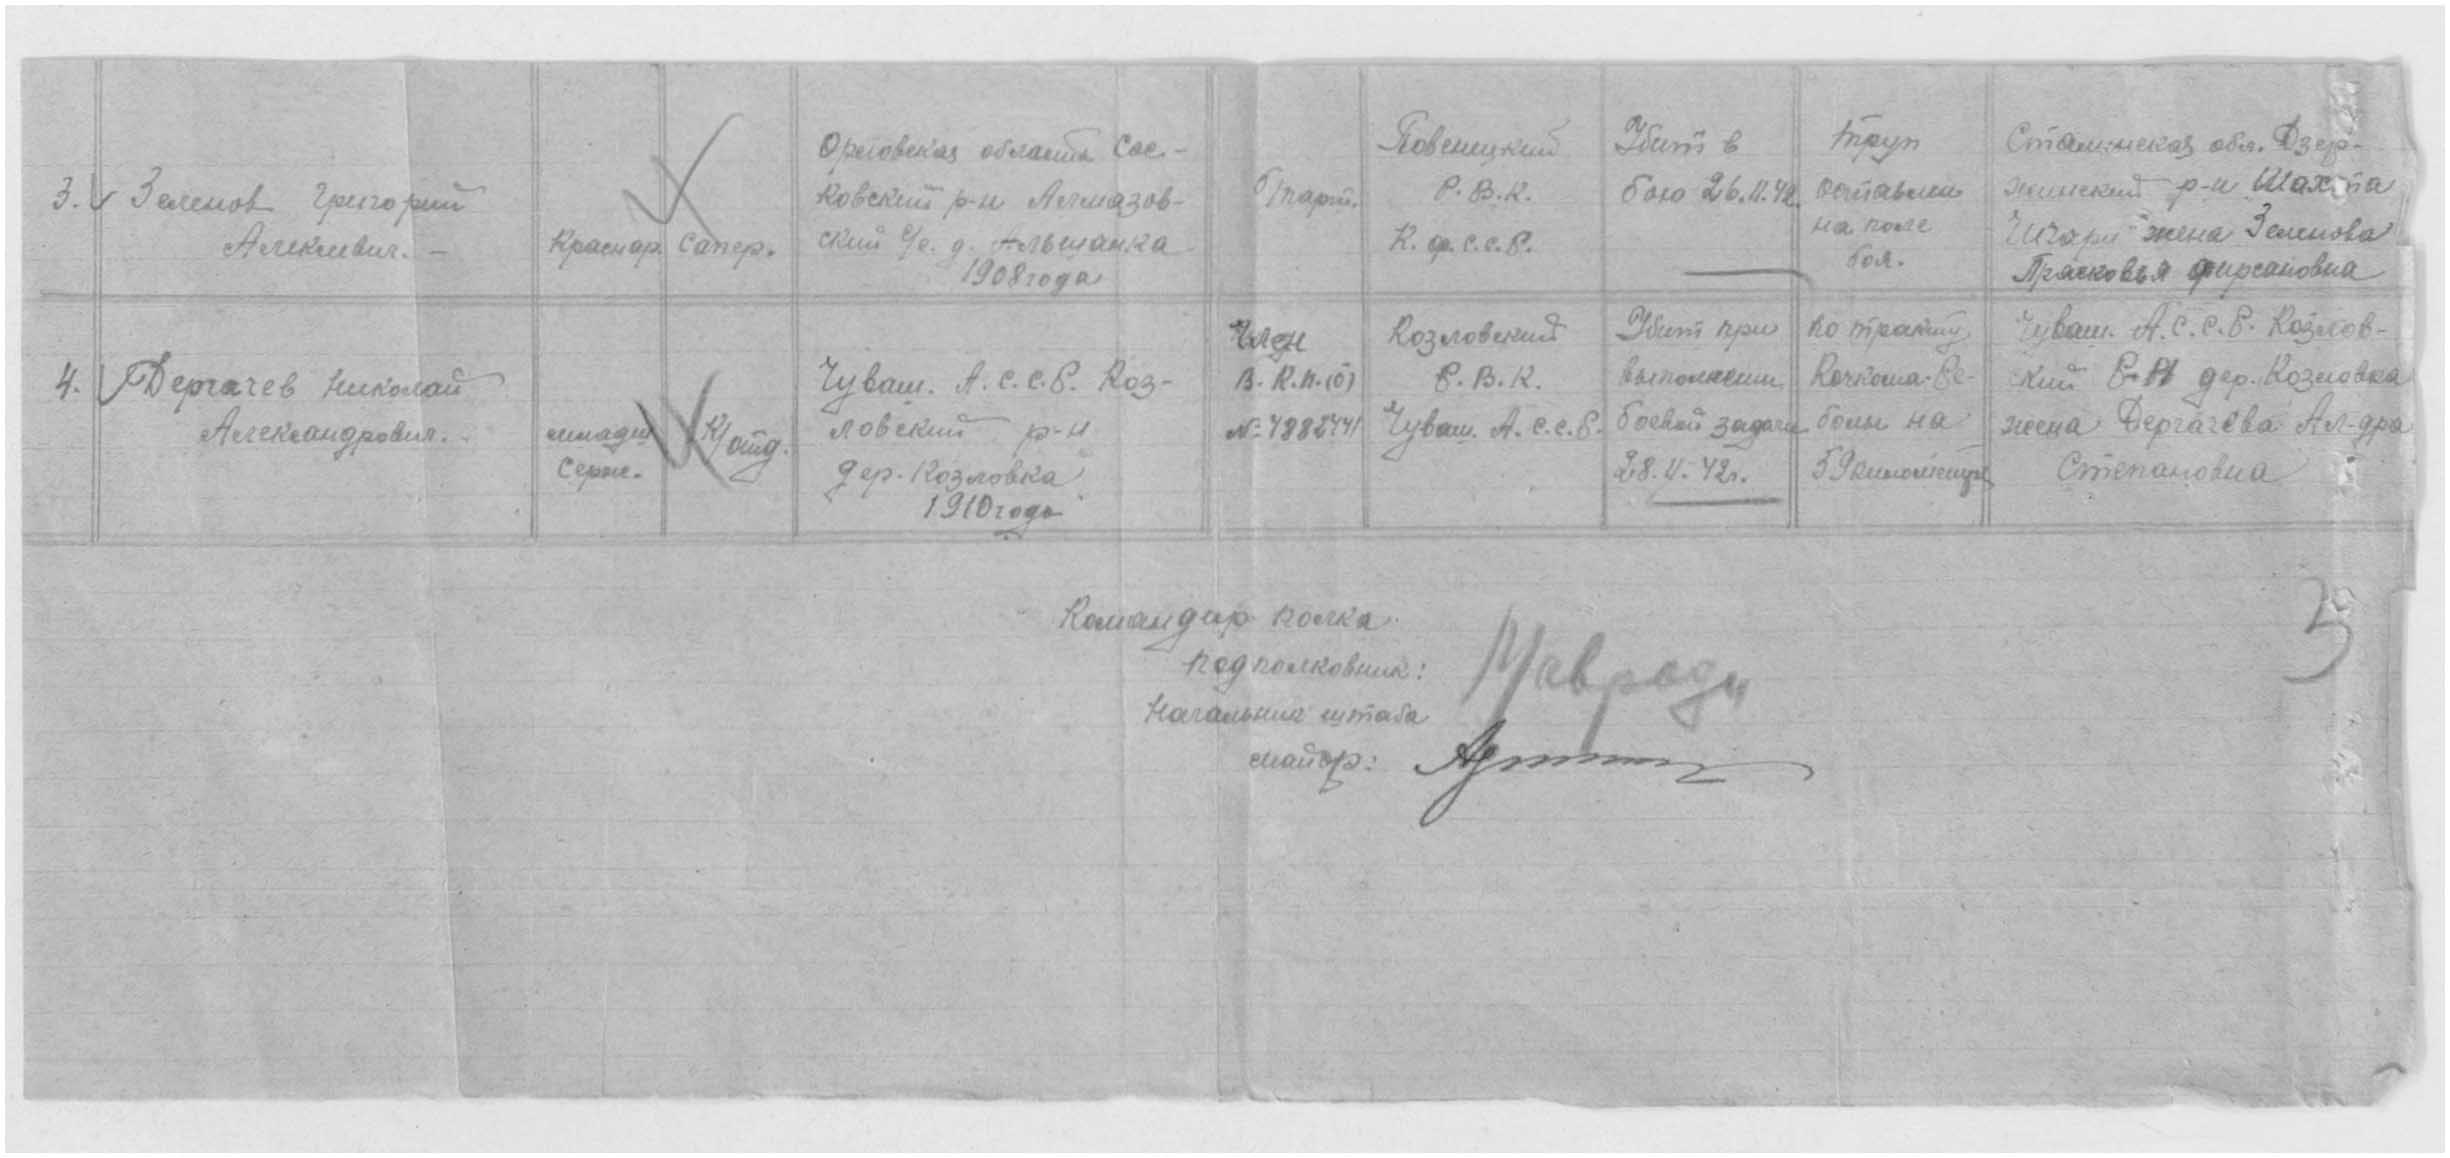 3. Зеленов Григорий
Алексеевич. –
Краснар.
Сапер.
Орловская область Сос-
ковский р-н Алмазов-
ский с/с. д. Альшанка
1908 года
б/парт.
Повенецкий
Р.В.К.
К.Ф.С.С.Р.
Убит в
бою 26.II.42.
Труп
оставлен
на поле
боя.
Сталинская обл. Дзер-
жинский р-н Шахта
жена Зеленова
Прасковья Фирсановна
4. Дергачев Николай
Александрович. -
младш
Серж.
К/отд.
Чуваш. А.С.С.Р. Коз-
ловский р-н
дер. Козловка
1910 года
Член
В.К.П.(б)
№ 4882441
Козловский
Р.В.К.
Чуваш. А.С.С.Р.
Убит при
выполнении
боевой задачи
28.II.42г.
по тракту
Кочкома-Ре-
болы на
59 километре
Чуваш. А.С.С.Р. Козлов-
ский Р-Н дер. Козловка
жена Дергачева Ал-дра
Степановна
Командир полка
подполковник: Мавроди
Начальник штаба
майор:
5